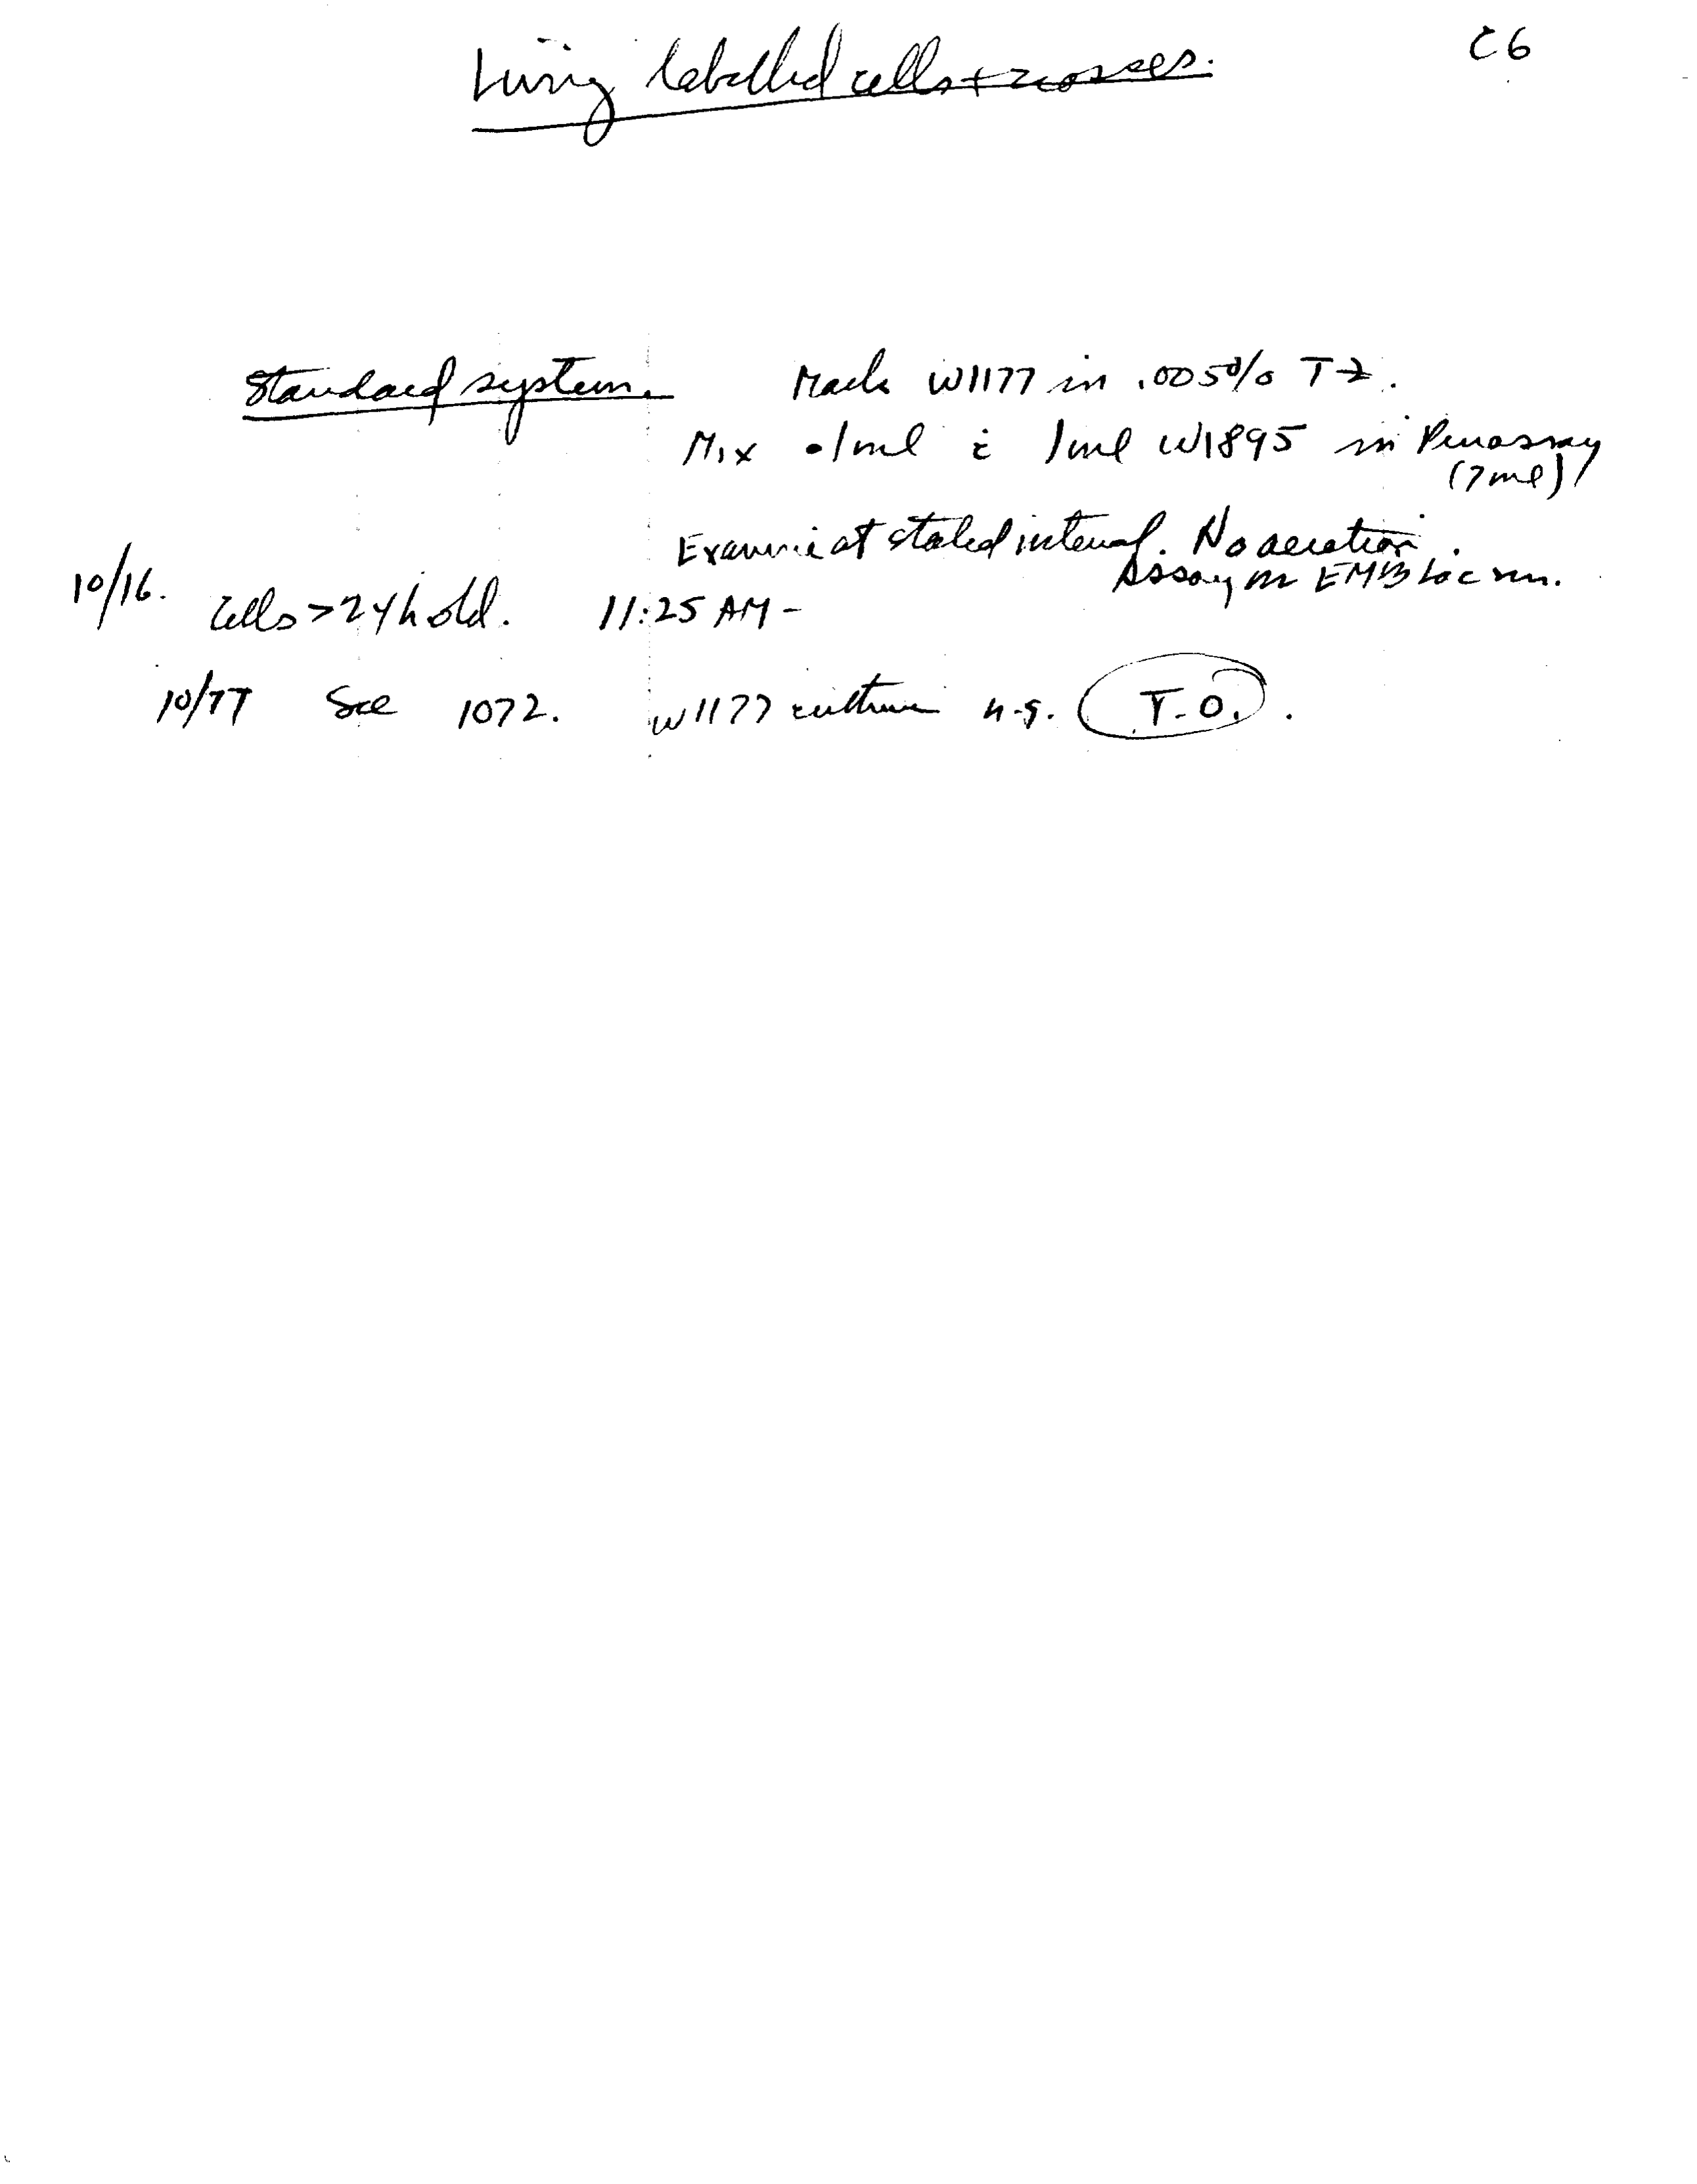 C6
Living labelled cells + crosses.
Standard system. Mark W1177 in .005% TZ.
Mix .1ml c̄ 1ml W1895 in Penassay
(7ml)
Examine at stated interval. No aeration.
Assay on EMB Lac sm.
10/16. Cells >24h old. 11:25 AM -
10/17 See 1072. W1177 culture n.g. T.O.